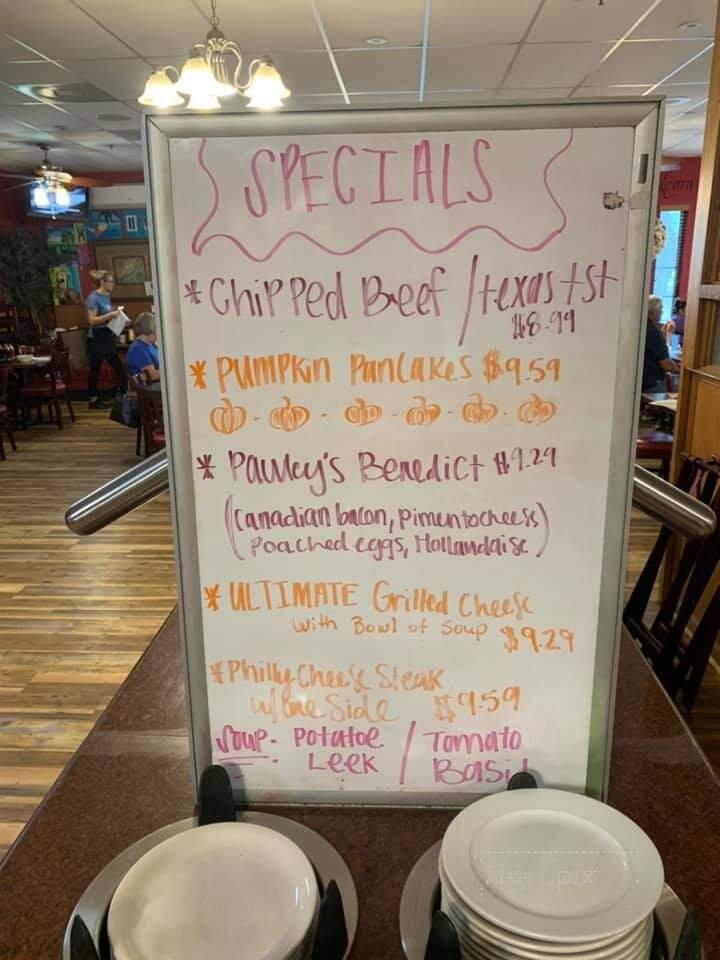 SPECIALS
* Chipped Beef / texas tst
$8.99
* PUMPKIN PanCakes $9.59
* Pawley's Benedict $9.29
(Canadian bacon, pimentocheese)
Poached eggs, Hollandaise)
* ULTIMATE Grilled Cheese
with Bowl of Soup $9.29
* Philly Cheese Steak
w/ one Side $9.59
Soup - Potatoe / Tomato
Leek Basil
menupix